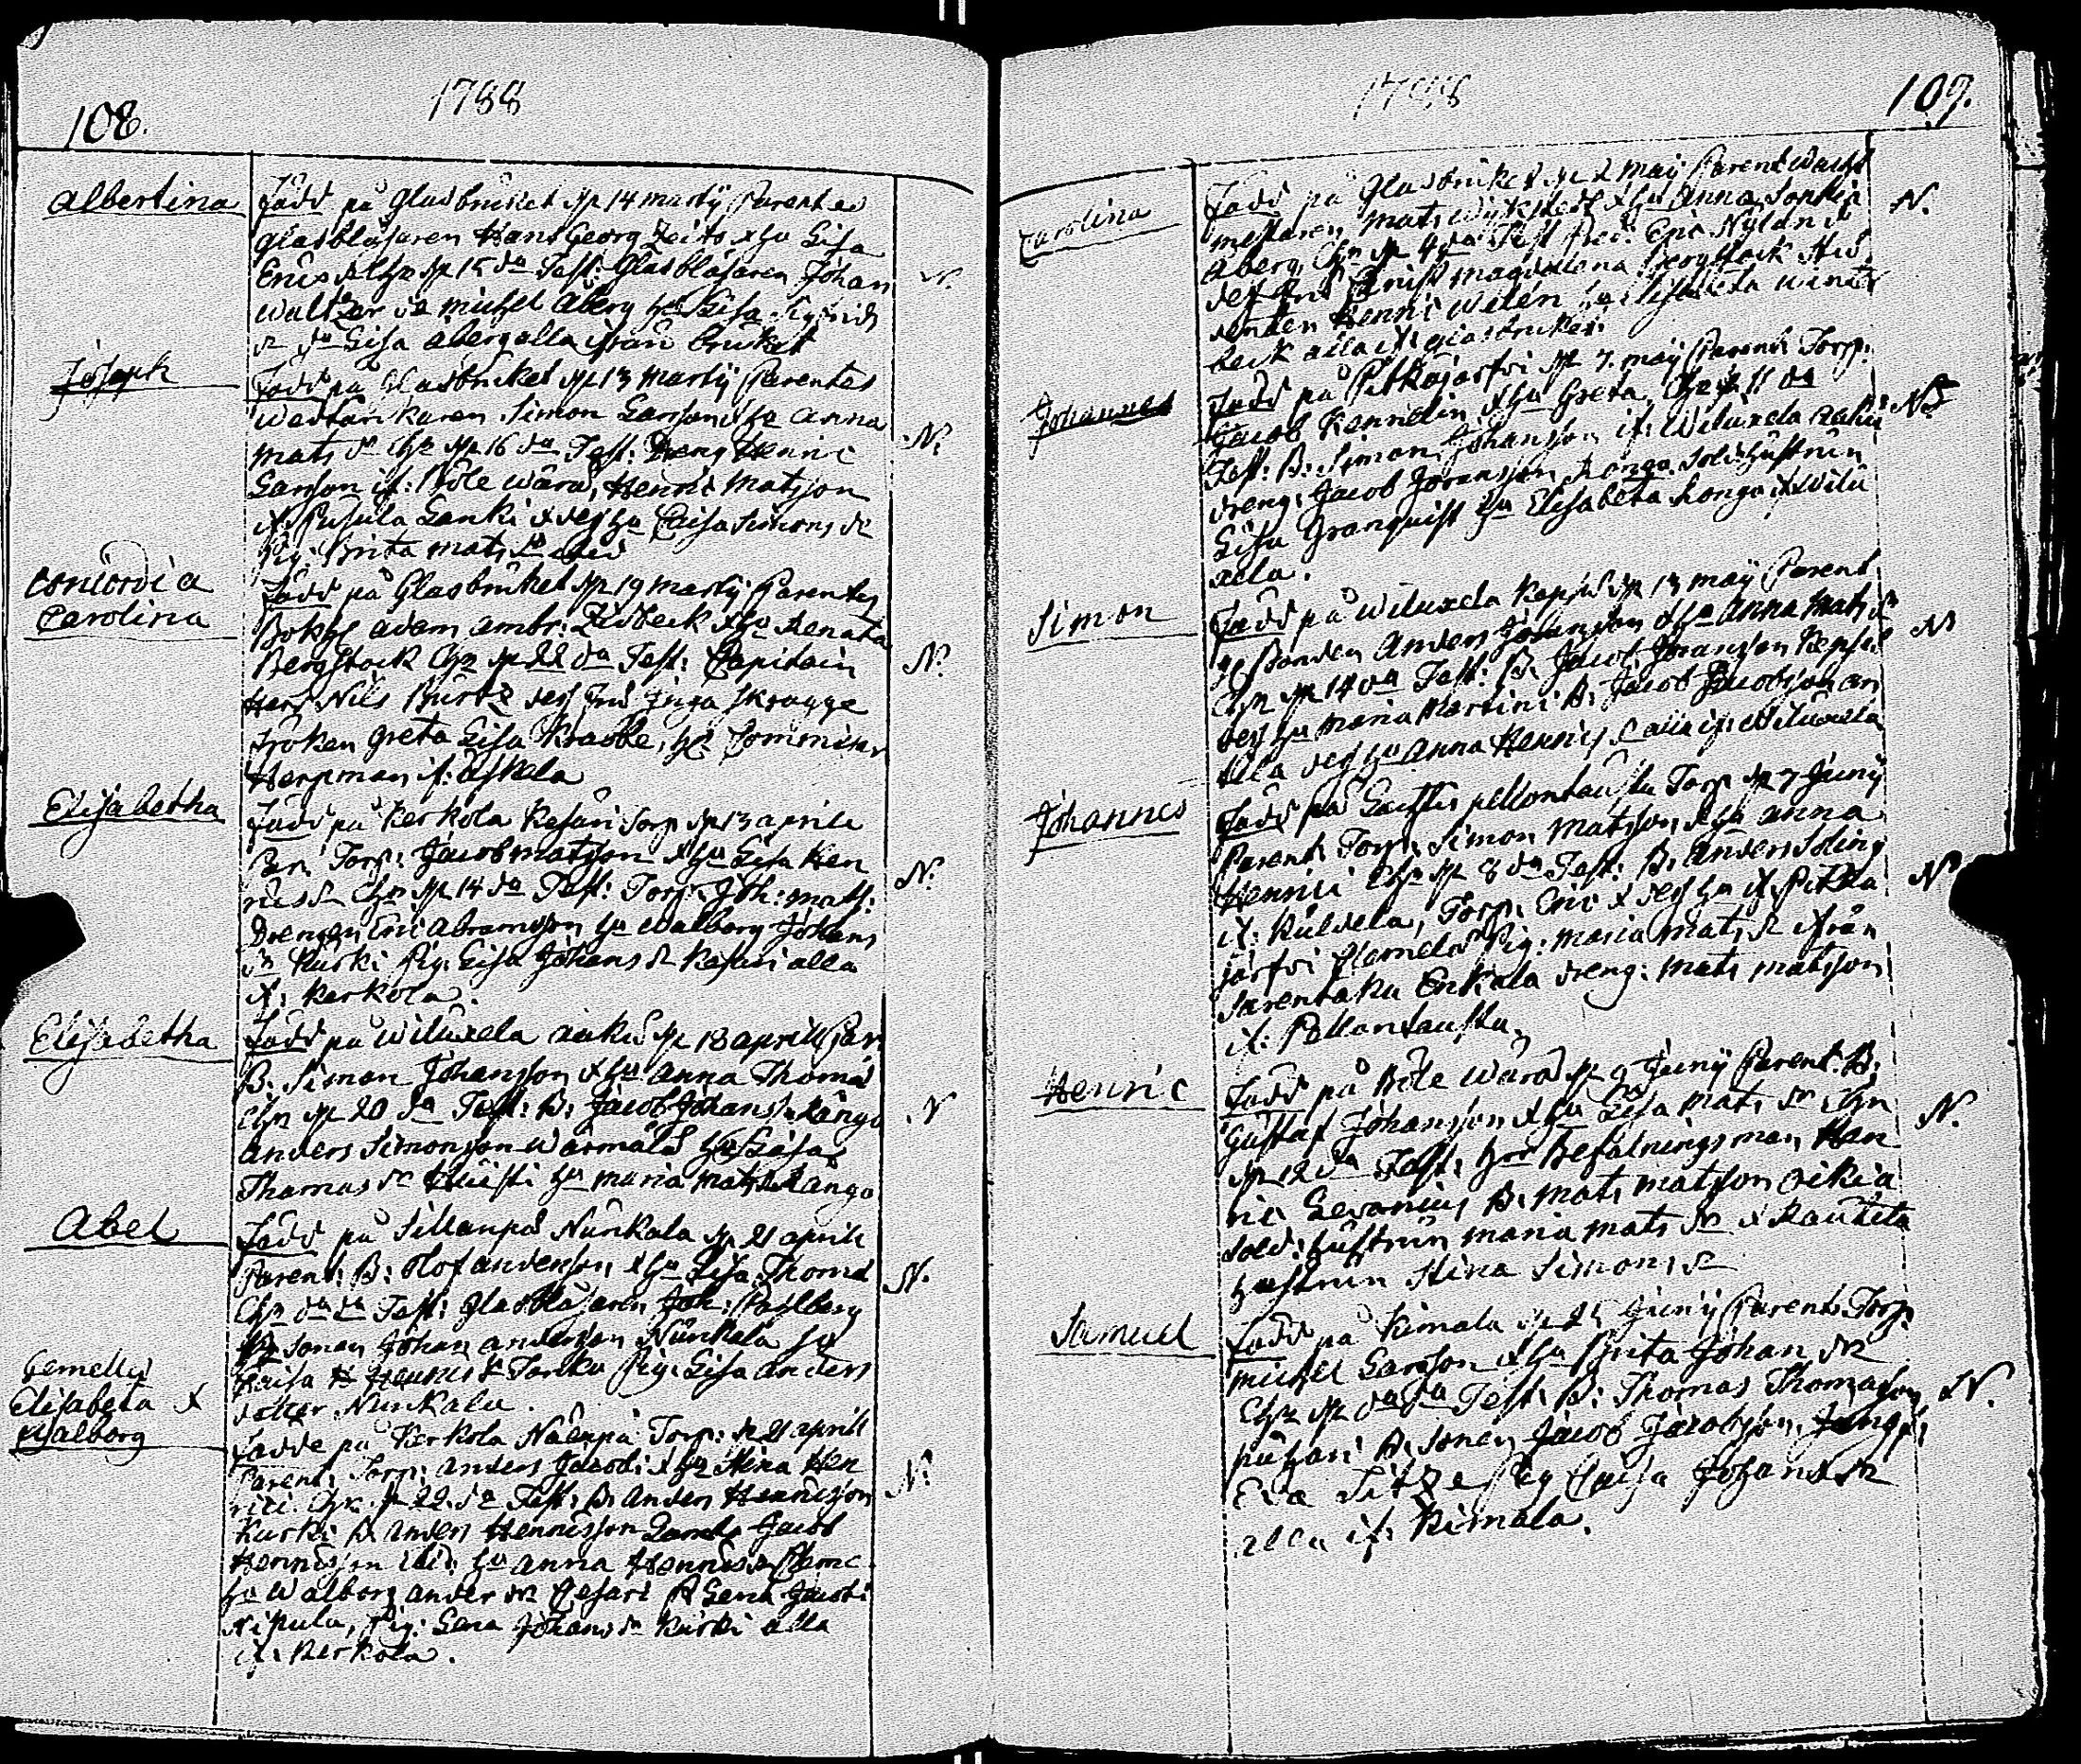 108.
1788
Albertina
Född på Glasbruket d 14 Martij Parentes
glasblåsaren Hans Georg Zeits x hu Lisa
Erics dr Chr d 15 da Test: Glasblåsaren Johan
Waltzer Michel Åberg hu Lisa
dr Lisa Åberg alla ifrån bruket
N.
Joseph
Född på Glasbruket d 13 Martij Parentes
Simon Larsson hu Anna
Mats dr Chr d 16 da Test: Dreng Henric
Larsson if: Böle wårå, Henric Matsson
if Pusula Lanki x des hu Caisa Simons dr
Pig. Brita Mats dr
N.
Concordia
Carolina
Född på Glasbruket d 19 Martij Parentes
Bokh Adam Ambr: Zidbeck x hu Renata
Bergstock Chr d 22 da Test: Capitain
Herr Nils Burtz des fru Inga Skragge
Fröken Greta Lisa Krabbe, hr
Herpman if:
N.
Elisabetha
Född på Kerkola Kesäri Torp d 13 Aprilis
Par: Torp: Jacob Matsson x hu Lisa Hen
rics dr Chr d 14 da Test: Torp: Joh: Mats:
Drengen Eric Abramsson hu Walborg Johans
dr Kurki Pig: Lisa Johans dr Kesäri alla
if: Kerkola.
N.
Elisabetha
Född på Wiluxela d 18 April Par
B. Simon Johansson x hu Anna Thomæ
Chr d 20 da Test: B. Jacob Johanss Kånga
Anders Simonsson Warmälä hu Caisa
Thomas dr hu Maria Mats dr Kånga
N
Abel
Född på Sillanpä Nunkala d 21 Aprilis
Parent: B: Olof Andersson x hu Lisa Thomæ
Chr da da Test: Glasblåsaren Joh: Pahlberg
B sonen Johan Andersson Nunkala hu
Caisa Henrics dr Torkku Pig: Lisa Anders
doter Nunkala.
N.
Gemelli
Elisabeta x
Walborg
Födde på Kerkola Nåenpä Torp: d 21 April
Parent: Torp: Anders Jacobi x hu Stina Hen
rici Chr d 22 da Test: B. Anders Henricsson
Kurki B Anders Henricsson Jacob
Henricsson ibid: hu Anna Henrics dr
hu Walborg Anders dr Kesari P Lena Jacobi
Nipula, Pig: Lena Johans dr Kurki alla
if: Kerkola.
N.
1788
109.
Carolina
Född på Glasbruket d 2 Maij Parent Wacht
mestaren Mats x hu Anna Sophia
Åberg, Chr d 4 da Test Eric Nyland
des fru Magdalena Bergstock Stud
denten Henric Widén Elisabeta Winter
beck alla if: glasbruket.
N.
Johannes
Född på Pitkäjärfvi d 7. Maij Parent: Torp:
Jacob Hennelin x hu Greta, Chr d 11 da
Test: B. Simon Johansson if: Wiluxela
dreng: Jacob Göransson Kånga. Sold: hustrun
Lisa Granquist hu Elisabeta Kånga if: Wilu
xela.
N.
Simon
Född på Wiluxela Keppu d 13 Maij Parent
Bonden Anders Göransson x hu Anna Mats dr
Chr d 14 da Test: B. Jacob Göransson
des hu Maria Martini B. Jacob Jacobsson
des hu Anna Henrics dr alla if: Wiluxela
N
Johannes
Född på Pellontausta Torp d 7 Junij
Parent: Torp: Simon Matsson x hu Anna
Henrici Chr d 8 da Test: B. Anders
if: Kuldela, Torp: Eric x des hu if: Pitkä
järfvi Pig: Maria Mats dr ifrån
Sarentaku Enkala dreng: Mats Matsson
if: Pellontausta.
N
Henric
Född på Böle Wårå d 9 Junij Parent: B:
Gustaf Johansson x hu Lisa Mats dr Chr
d 12 da Test: hr Befalningsman Hen
ric Levanius B. Mats Matsson
Sold: hustrun Maria Mats dr
hustrun Stina Simons dr
N.
Samuel
Född på Kimala d 25 Junij Parent: Torp:
Michel Larsson x hu Brita Johan dr
Chr d da da Test: B: Thomas Thomasson
B. sonen Jacob Jacobsson,
Eva Pig Caisa Johans dr
alla if: Kimala.
N.